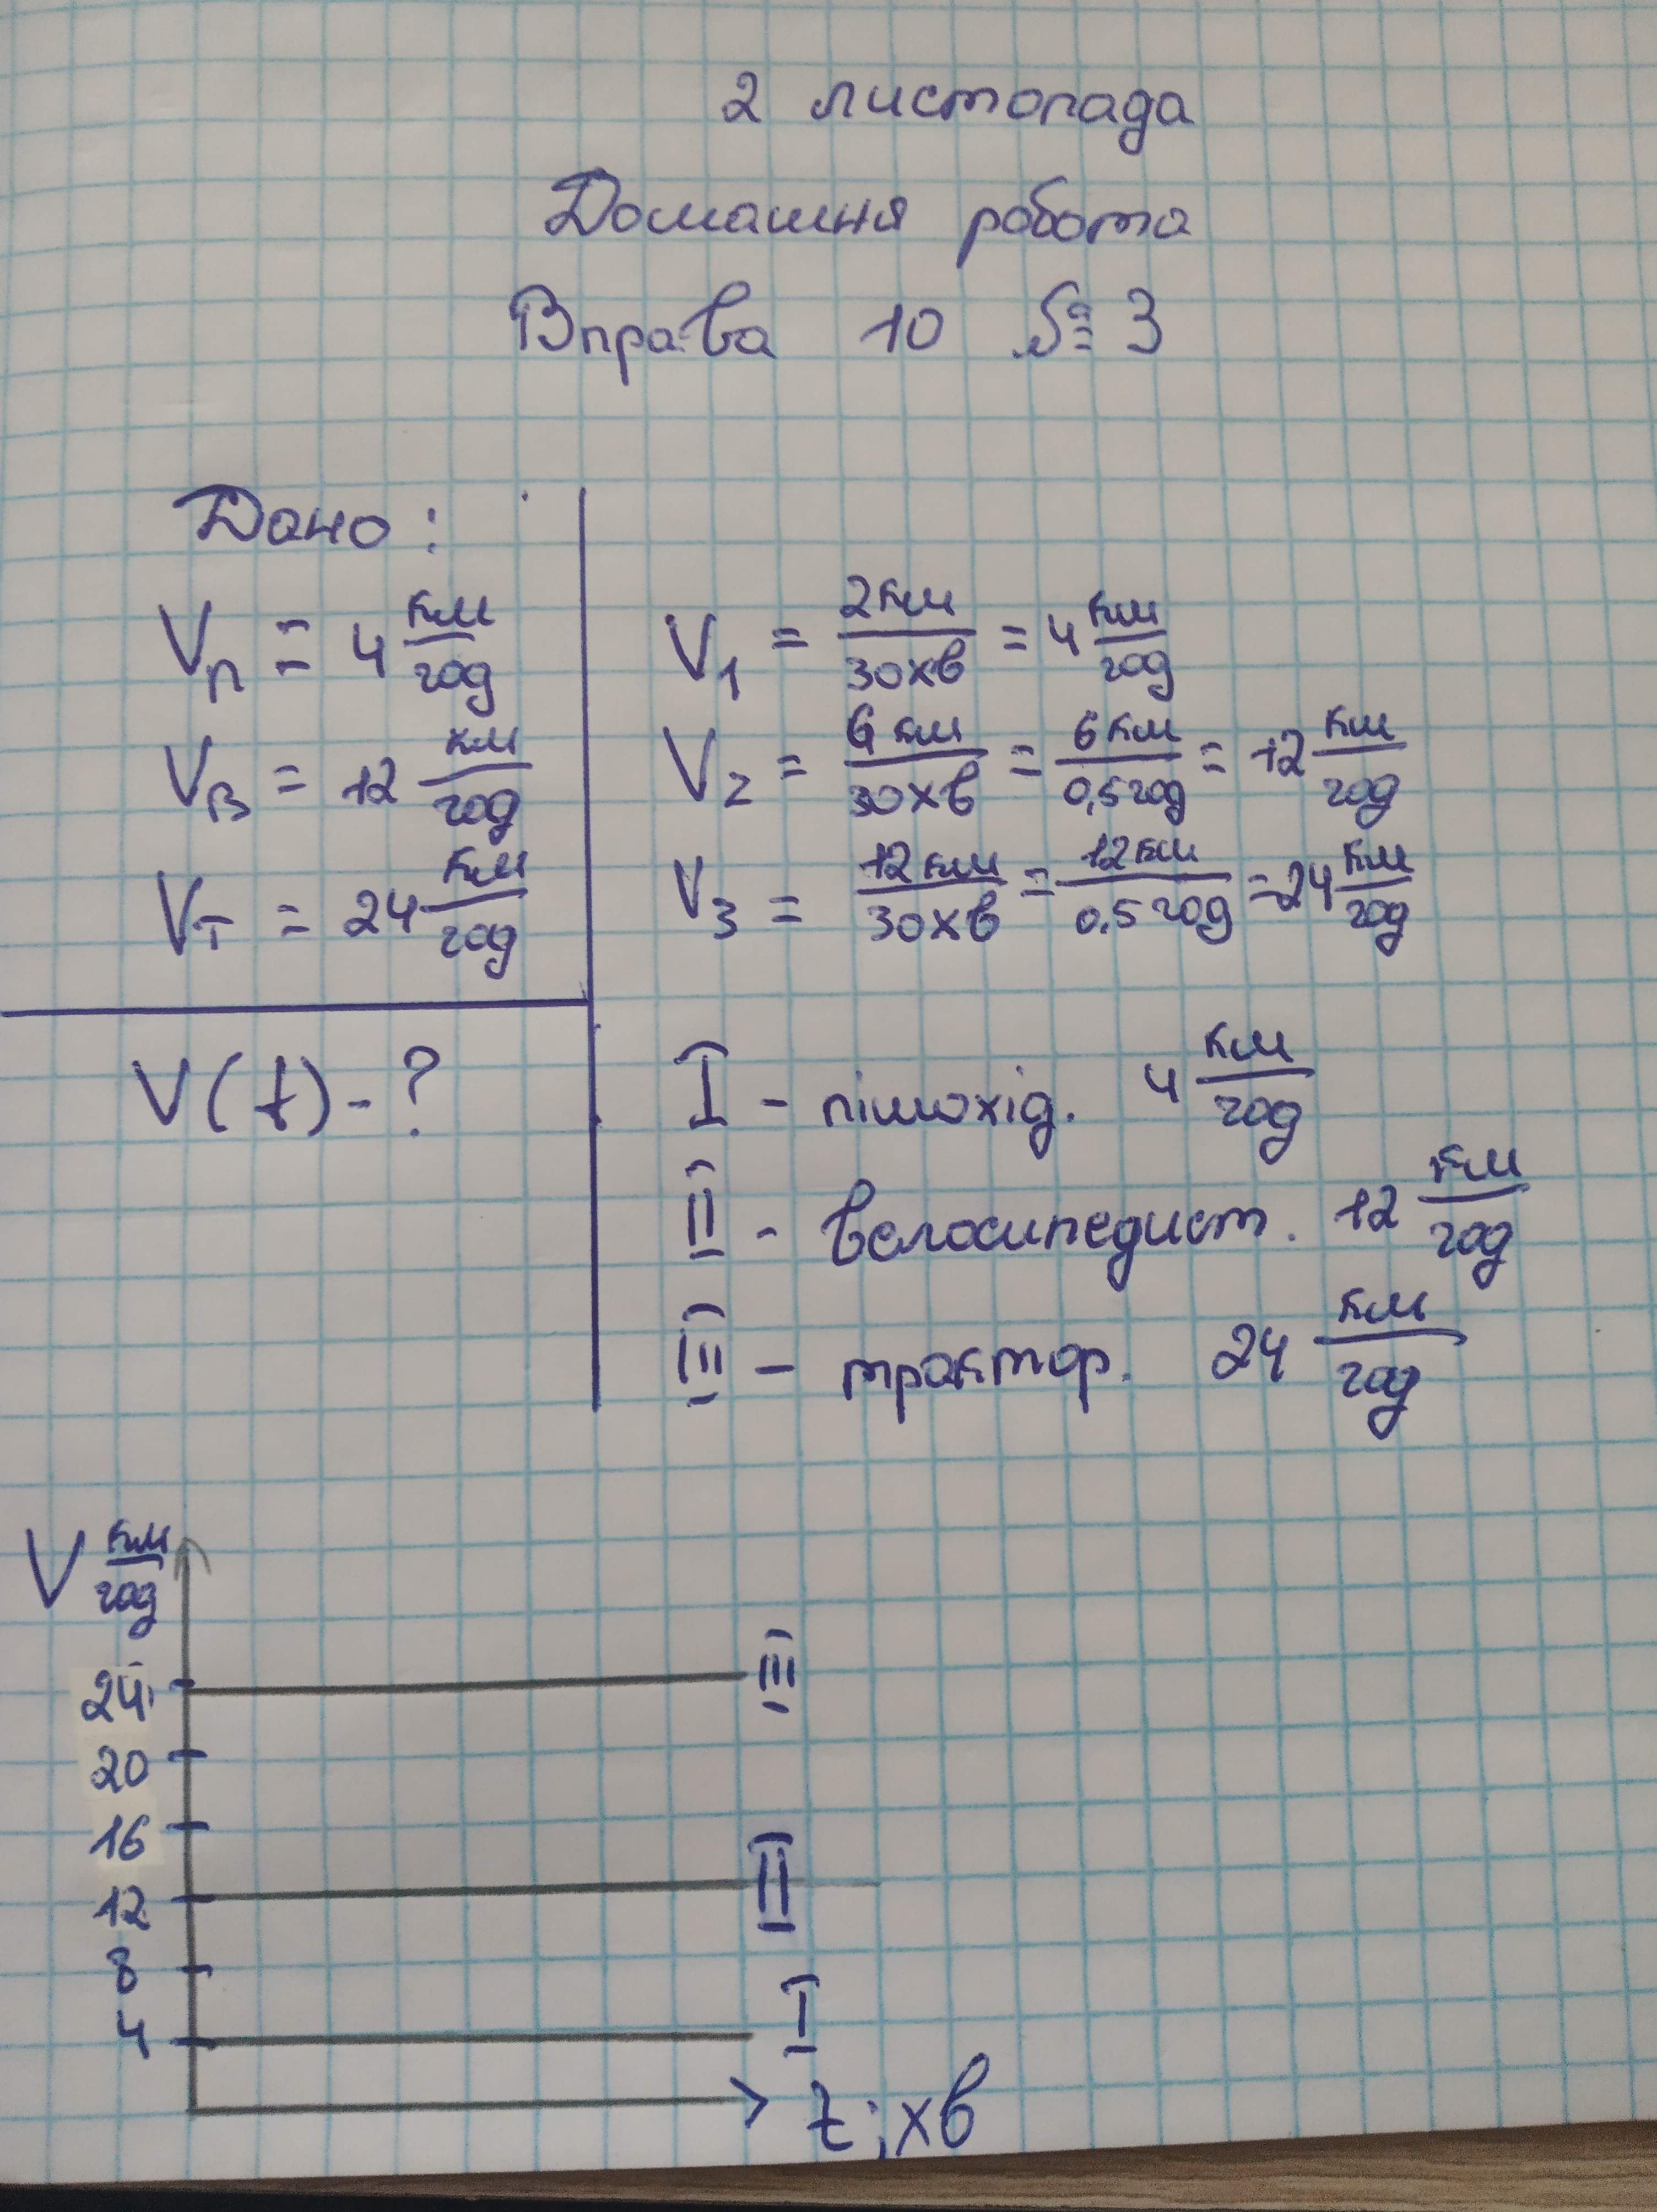 2 листопада
Домашня робота
Вправа 10 № 3
Дано:
Vп = 4 км/год
Vв = 12 км/год
Vт = 24 км/год
V(t) - ?
V1 = 2км/30хв = 4 км/год
V2 = 6 км/30хв = 6 км/0,5 год = 12 км/год
V3 = 12 км/30хв = 12 км/0,5 год = 24 км/год
I - пішохід. 4 км/год
II - велосипедист. 12 км/год
III - трактор. 24 км/год
V км/год
24
III
20
16
12
II
8
4
I
t; хв